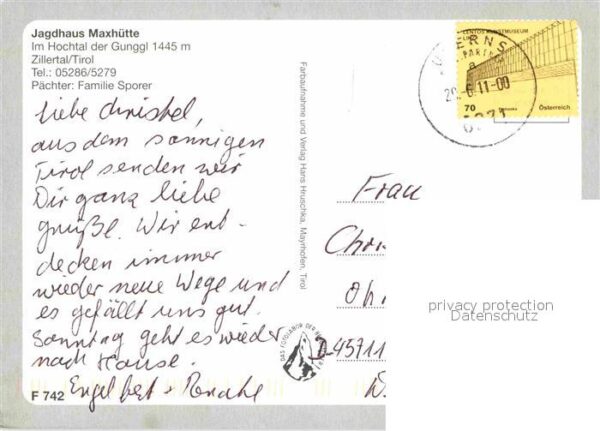 Jagdhaus Maxhütte
Im Hochtal der Gunggl 1445 m
Zillertal/Tirol
Tel.: 05286/5279
Pächter: Familie Sporer
Liebe Christel,
aus dem sonnigen
Tirol senden wir
Dir ganz liebe
Grüße. Wir ent-
decken immer
wieder neue Wege und
es gefällt uns gut.
Sonntag geht es wieder
nach Hause.
Engelbert + Renate
F 742
Farbaufnahme und Verlag Hans Hruschka, Mayrhofen, Tirol
LENTOS KUNSTMUSEUM
70
Österreich
11-00
Frau
Chri
Oh
D-45711
privacy protection
Datenschutz